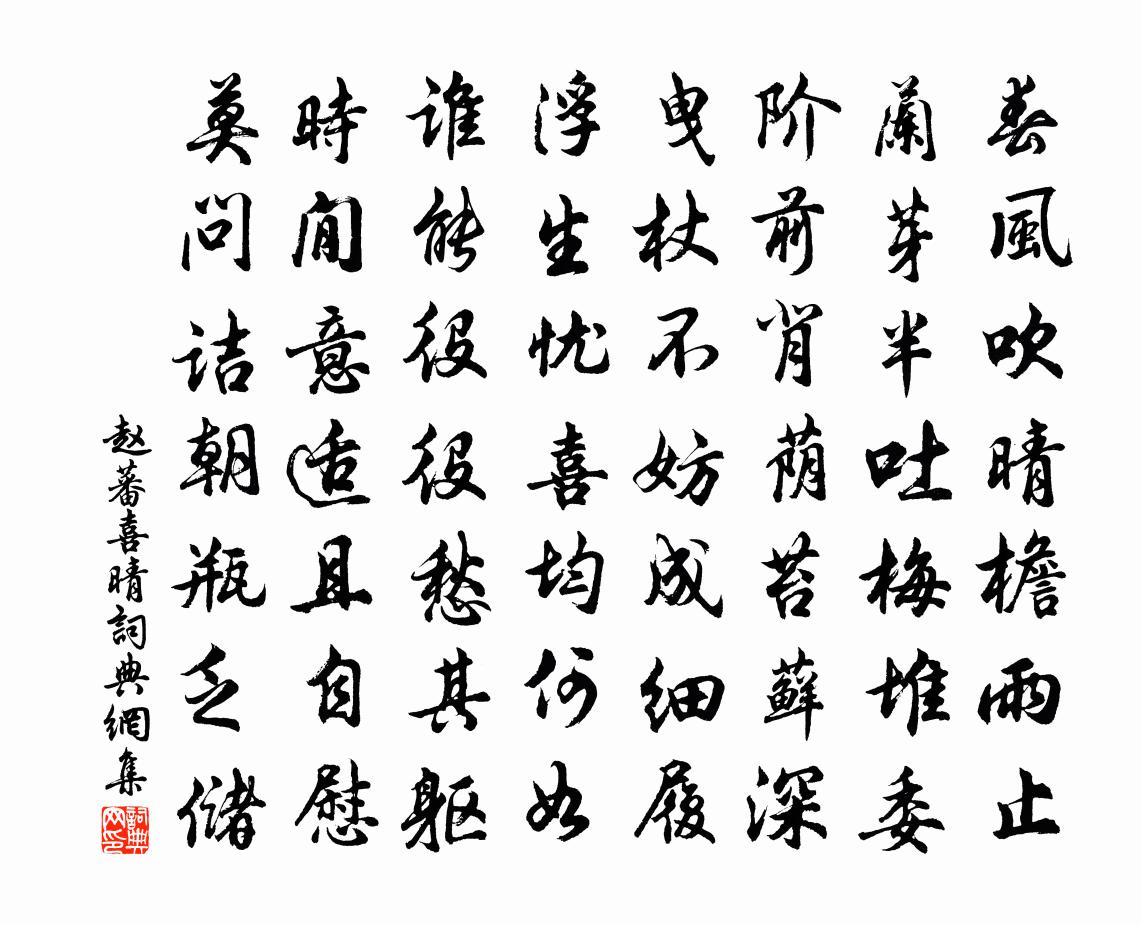 春風吹晴檐雨止
蘭芽半吐梅堆委
阶前肖荫苔蘚深
曳杖不妨成细履
浮生忧喜均何如
谁能役役愁其躯
時閒意适且自慰
莫问诘朝瓶乏储
赵蕃喜晴詞典網集
詞典网印